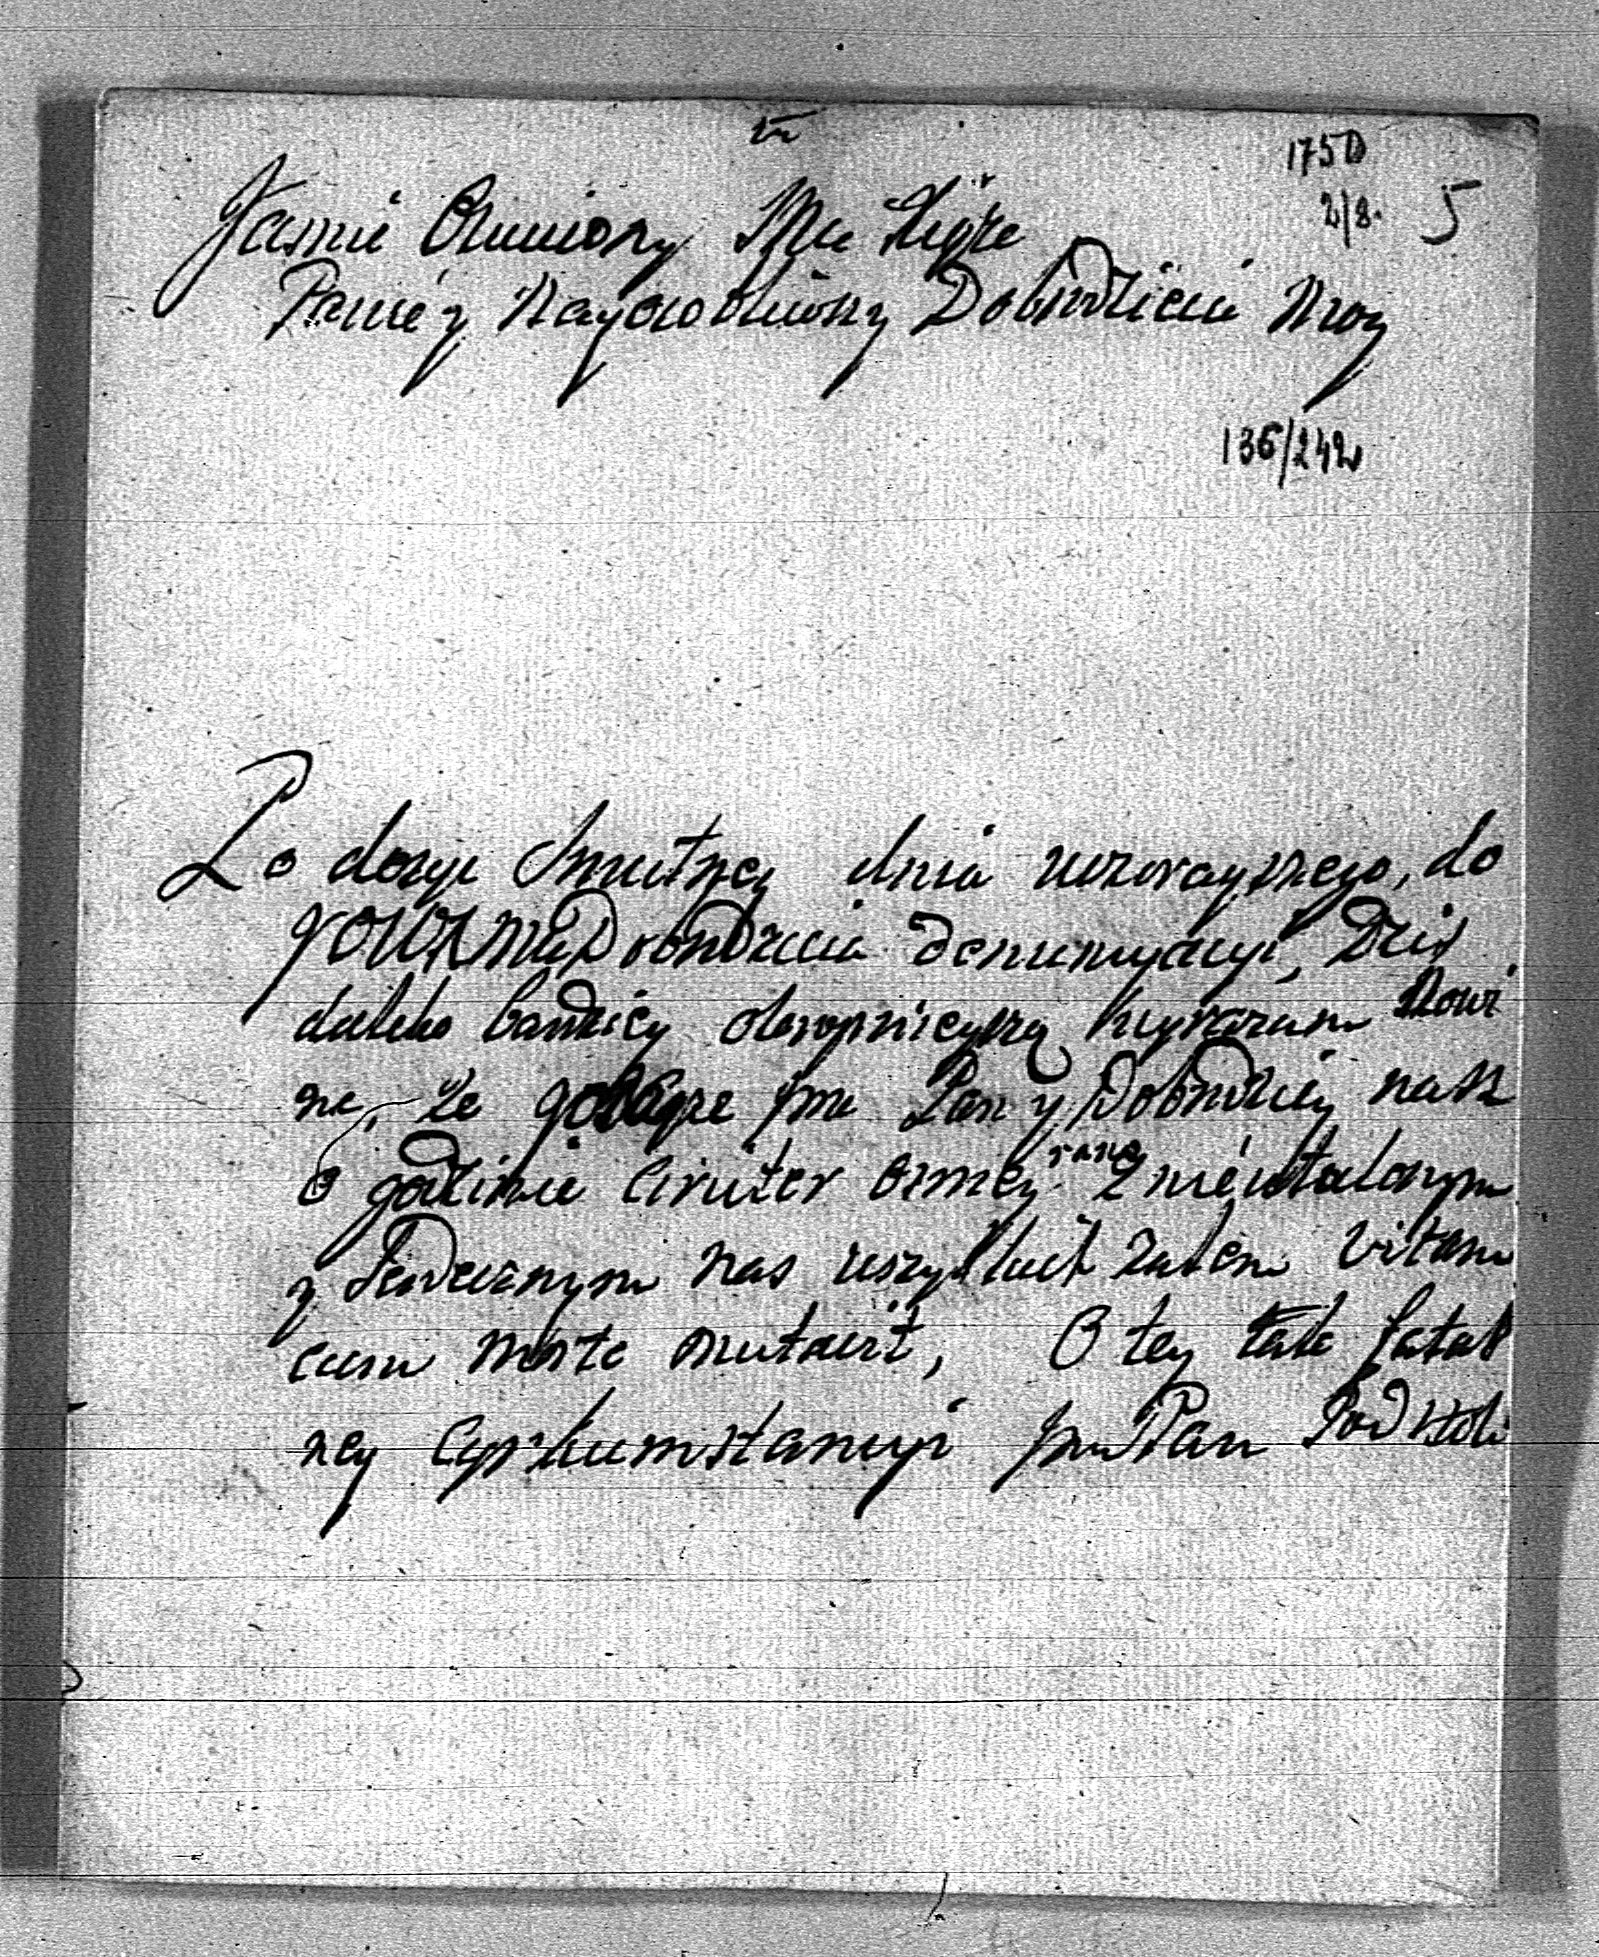 1750
2/8. 5
Jasnie Oswiecony Mci Xiąże
Panie y Nayosobliwszy Dobrodzieiu Moy
136/242
Po dosyc smutney dnia wczorayszego, do
JOWXMci Dobrodzieia denuncyacyi, Dzis
daleko bardziey okropnieyszą wyrażam Nowi
ne, że godney Jme Pan y Dobrodziey nasz
o godzinie circiter osmey rano z nieutulonym
y serdecznym nas wszystkich żalem Vitam
cum morte mutavit, O tey tak fatal
ney Cyrkumstancyi JmPan Podstoli